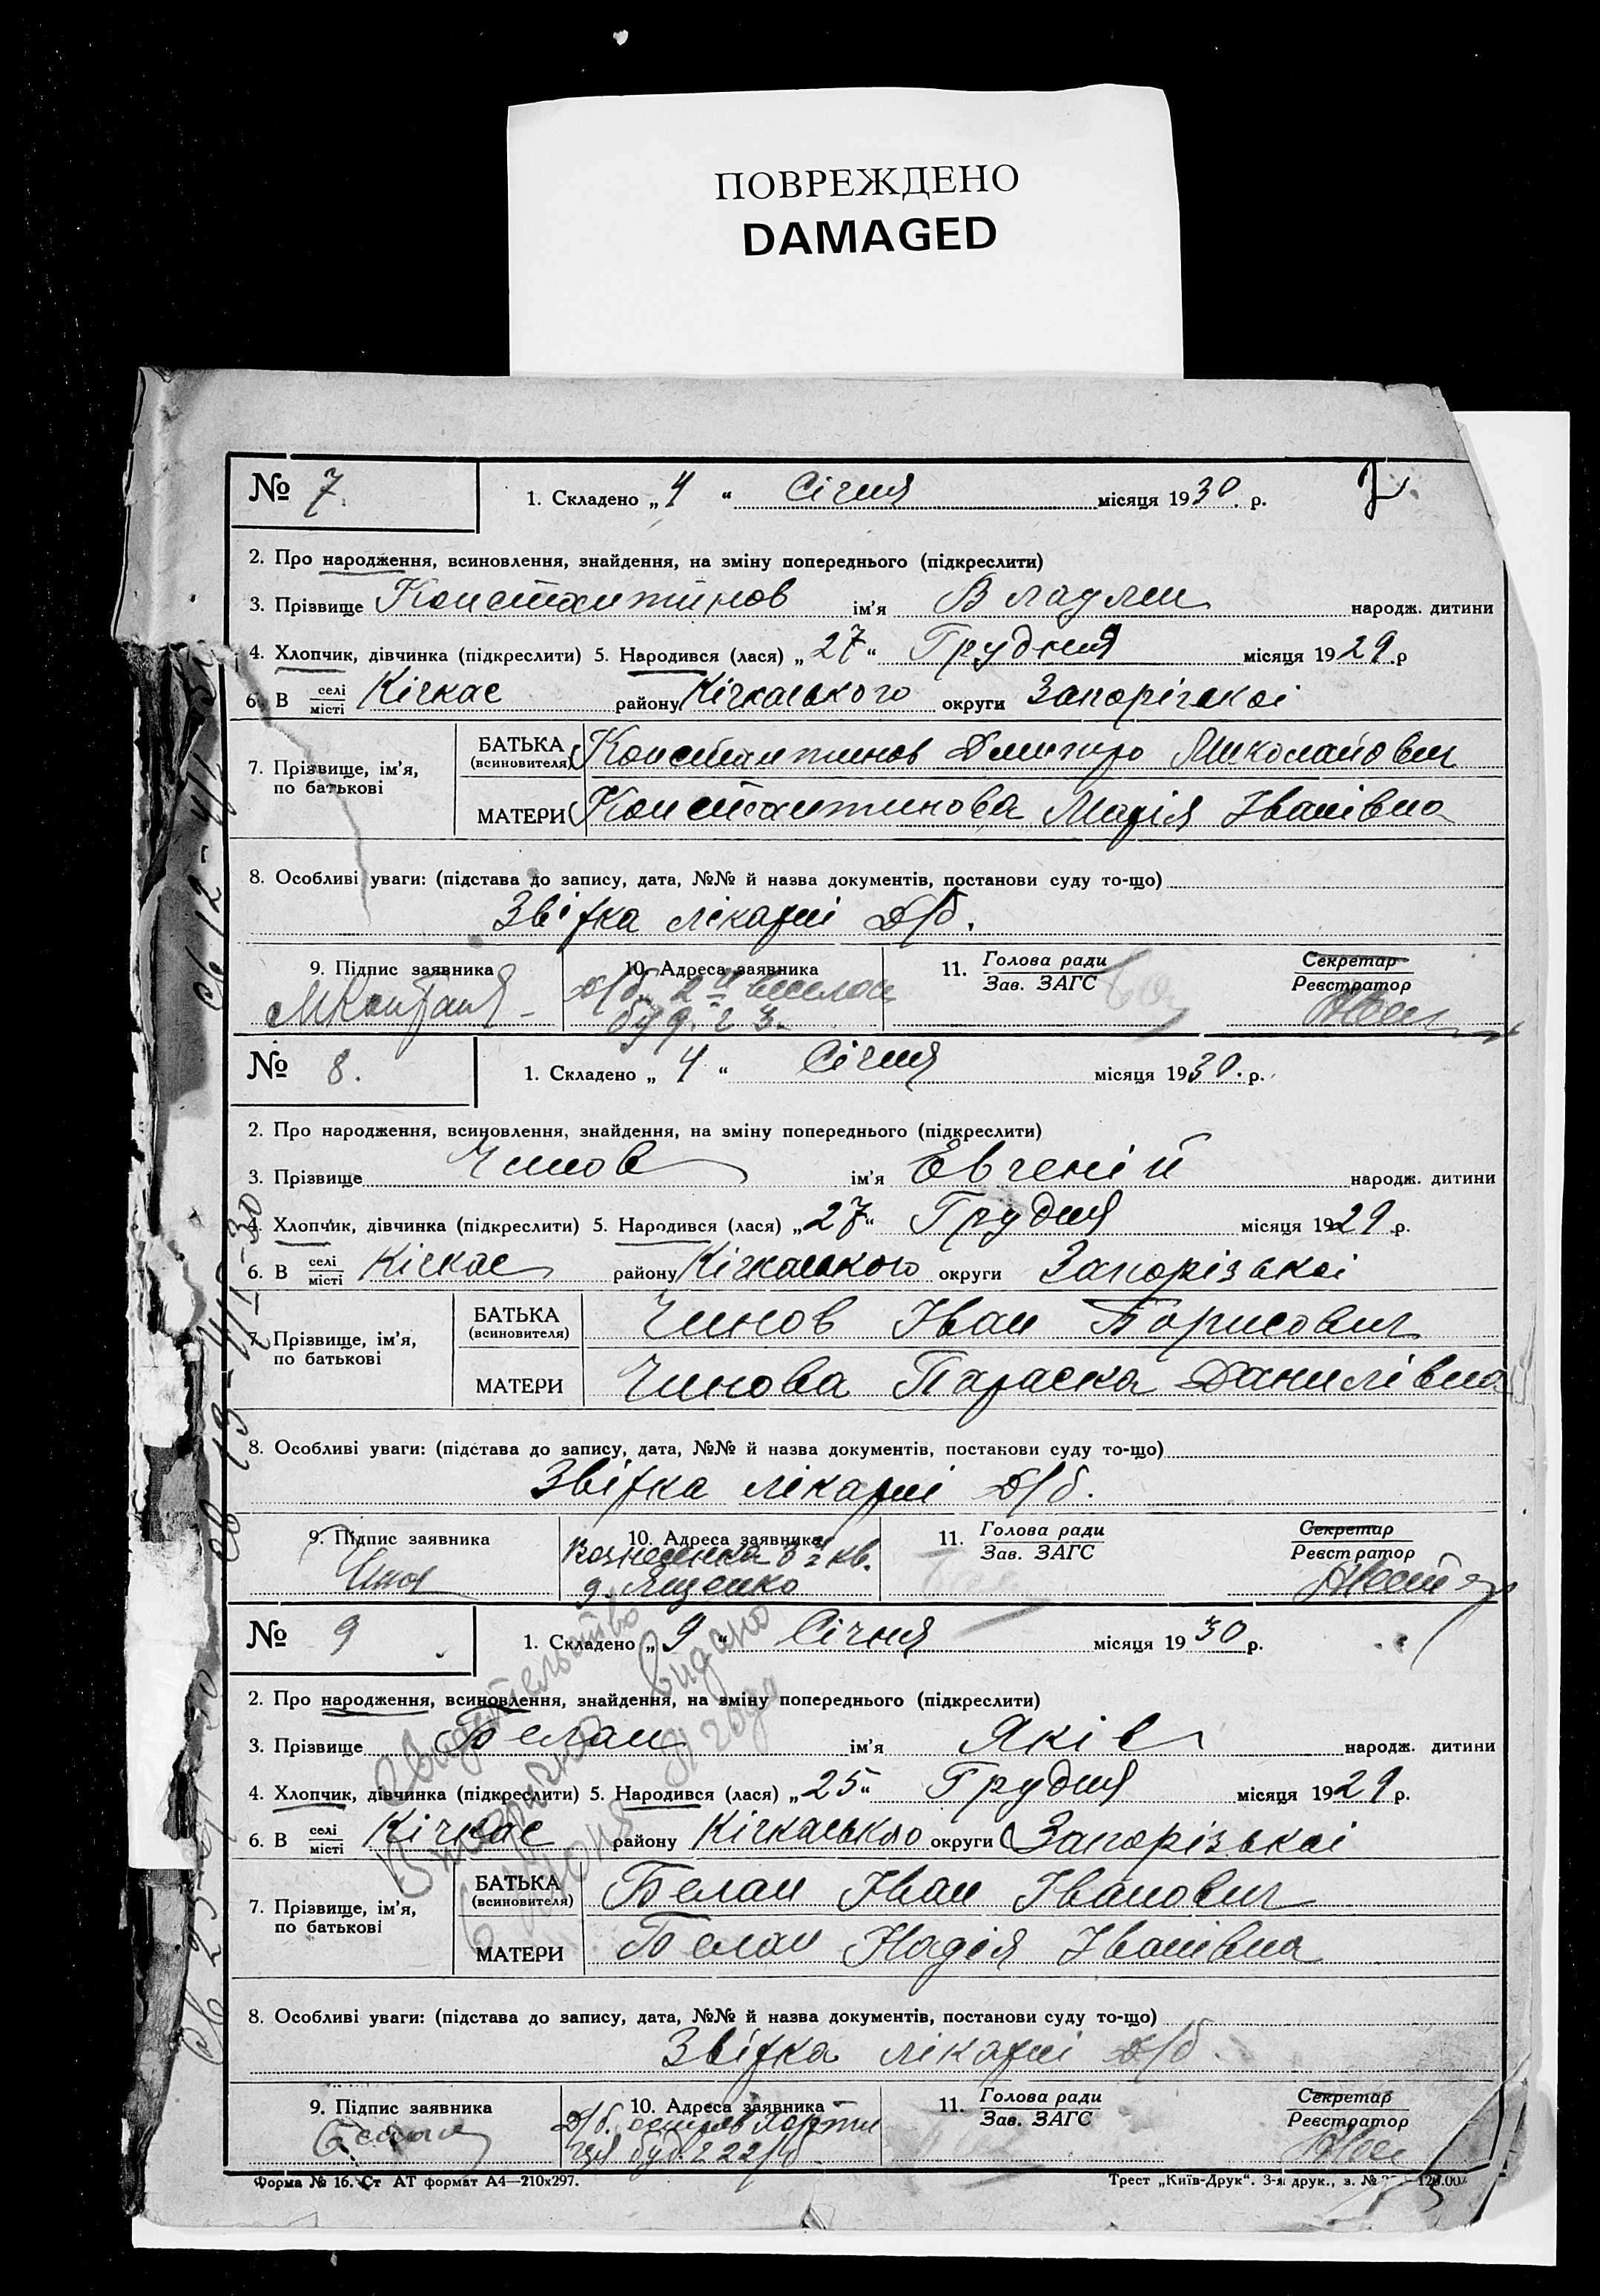 ПОВРЕЖДЕНО
DAMAGED
№ 7. 1. Складено „4“ Січня місяця 1930. р. 7.
2. Про народження, всиновлення, знайдення, на зміну попереднього (підкреслити)
3. Прізвище Константинов ім'я Владлен народж. дитини
4. Хлопчик, дівчинка (підкреслити) 5. Народився (лася) „27“ Грудня місяця 1929 р
6. В селі місті Кічкас району Кічкаського округи Запорізької
7. Прізвище, ім'я, по батькові
БАТЬКА (всиновителя) Константинов Дмитро Миколайович
МАТЕРИ Константинова Марія Іванівна
8. Особливі уваги: (підстава до запису, дата, №№ й назва документів, постанови суду то-що)
Звітка лікарні Д/б.
9. Підпис заявника 10. Адреса заявника 11. Голова ради Зав. ЗАГС Секретар Реєстратор
Д/б. 2
буд. 23.
№ 8. 1. Складено „4“ Січня місяця 1930. р.
2. Про народження, всиновлення, знайдення, на зміну попереднього (підкреслити)
3. Прізвище Чинов ім'я Евгеній народж. дитини
4. Хлопчик, дівчинка (підкреслити) 5. Народився (лася) „27“ Грудня місяця 1929 р.
6. В селі місті Кічкас району Кічкаського округи Запорізької
7. Прізвище, ім'я, по батькові
БАТЬКА (всиновителя) Чинов Іван Борисович
МАТЕРИ Чинова Параска Данилівна
8. Особливі уваги: (підстава до запису, дата, №№ й назва документів, постанови суду то-що)
Звітка лікарні Д/б.
9. Підпис заявника 10. Адреса заявника 11. Голова ради Зав. ЗАГС Секретар Реєстратор
Вознесенка кв.
д. Ященко
№ 9 1. Складено „9“ Січня місяця 1930 р.
2. Про народження, всиновлення, знайдення, на зміну попереднього (підкреслити)
3. Прізвище Белан ім'я Яків народж. дитини
4. Хлопчик, дівчинка (підкреслити) 5. Народився (лася) „25“ Грудня місяця 1929 р.
6. В селі місті Кічкас району Кічкаського округи Запорізької
7. Прізвище, ім'я, по батькові
БАТЬКА (всиновителя) Белан Іван Іванович
МАТЕРИ Белан Надія Іванівна
8. Особливі уваги: (підстава до запису, дата, №№ й назва документів, постанови суду то-що)
Звітка лікарні Д/б.
9. Підпис заявника 10. Адреса заявника 11. Голова ради Зав. ЗАГС Секретар Реєстратор
Д/б. острів Хорти
ця буд.
Форма № 16. Ст АТ формат А4—210x297. Трест „Київ-Друк“. 3-я друк., з. №